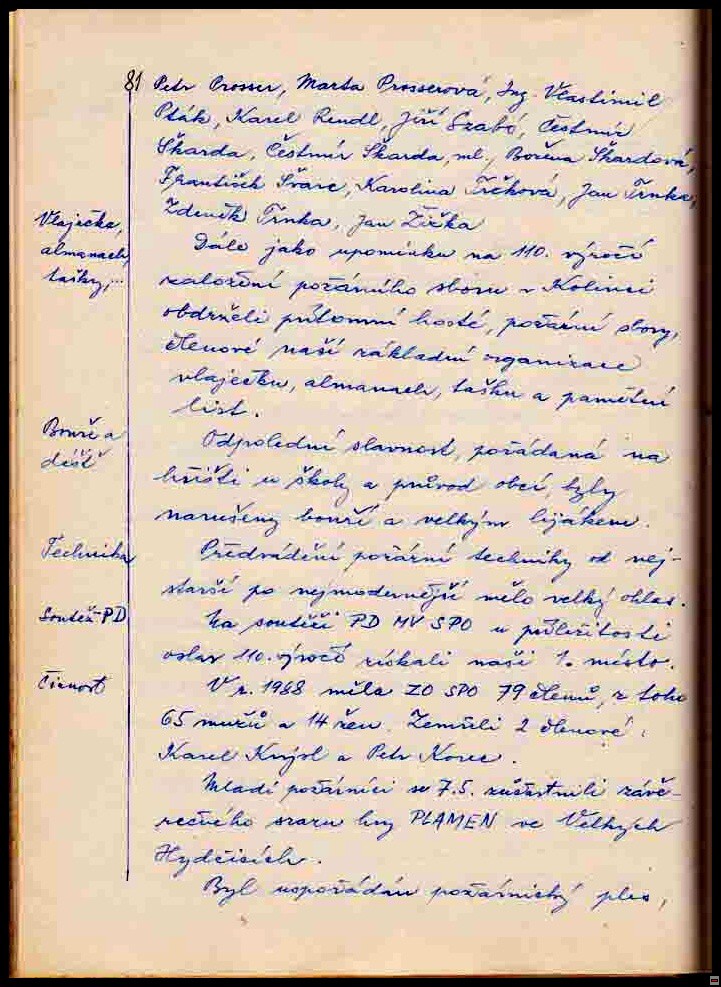 81 Petr Prosser, Marta Prosserová, Ing. Vlastimil
Pták, Karel Rendl, Jiří Szabó, Čestmír
Škarda, Čestmír Škarda, ml., Božena Škardová,
František Švarc, Karolina Trčková, Jan Trnka,
Zdeněk Trnka, Jan Žižka
Vlaječka,
almanach,
tašky,...
Dále jako upomínku na 110. výročí
založení požárního sboru v Kolinci
obdrželi přítomní hosté, požární sbory,
členové naší základní organizace
vlaječku, almanach, tašku a pamětní
list.
Bouře a
déšť
Odpolední slavnost, pořádaná na
hřišti u školy a průvod obcí, byly
narušeny bouří a velkým lijákem.
Technika
Předvádění požární techniky od nej-
starší po nejmodernější mělo velký ohlas.
Soutěž PD
Na soutěži PD MV SPO u příležitosti
oslav 110. výročí získali naši 1. místo.
Činnost
V r. 1988 měla ZO SPO 79 členů, z toho
65 mužů a 14 žen. Zemřeli 2 členové:
Karel a Petr
Mladí požárníci se 7.5. zúčastnili závě-
rečného srazu hry PLAMEN ve Velkých
Hydčicích.
Byl uspořádán požárnický ples,